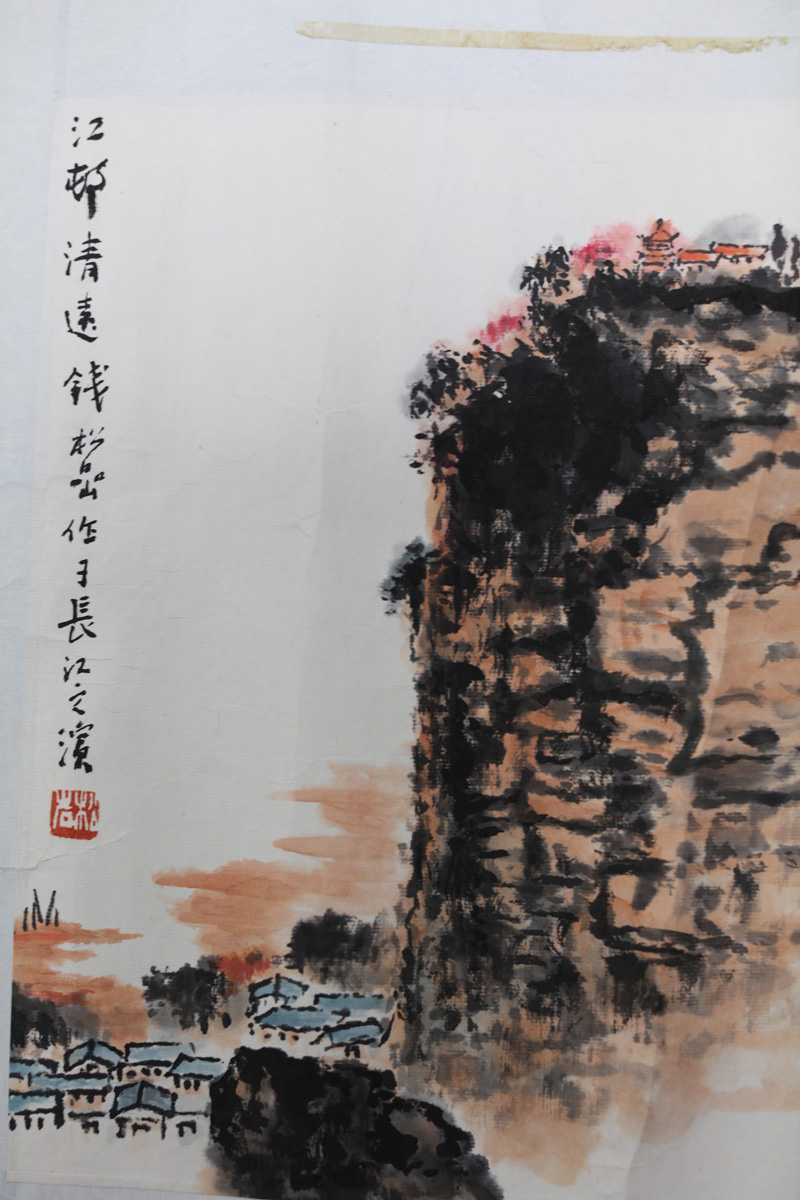 江邨清遠 錢松嵒作于長江之濱
松嵒